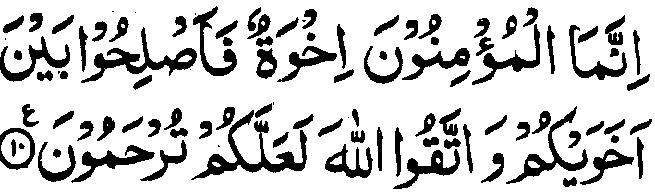 اِنَّمَا الْمُؤْمِنُوْنَ اِخْوَةٌ فَاَصْلِحُوْا بَيْنَ
اَخَوَيْكُمْ وَ اتَّقُوا اللّٰهَ لَعَلَّكُمْ تُرْحَمُوْنَ ۧ۝۱۰